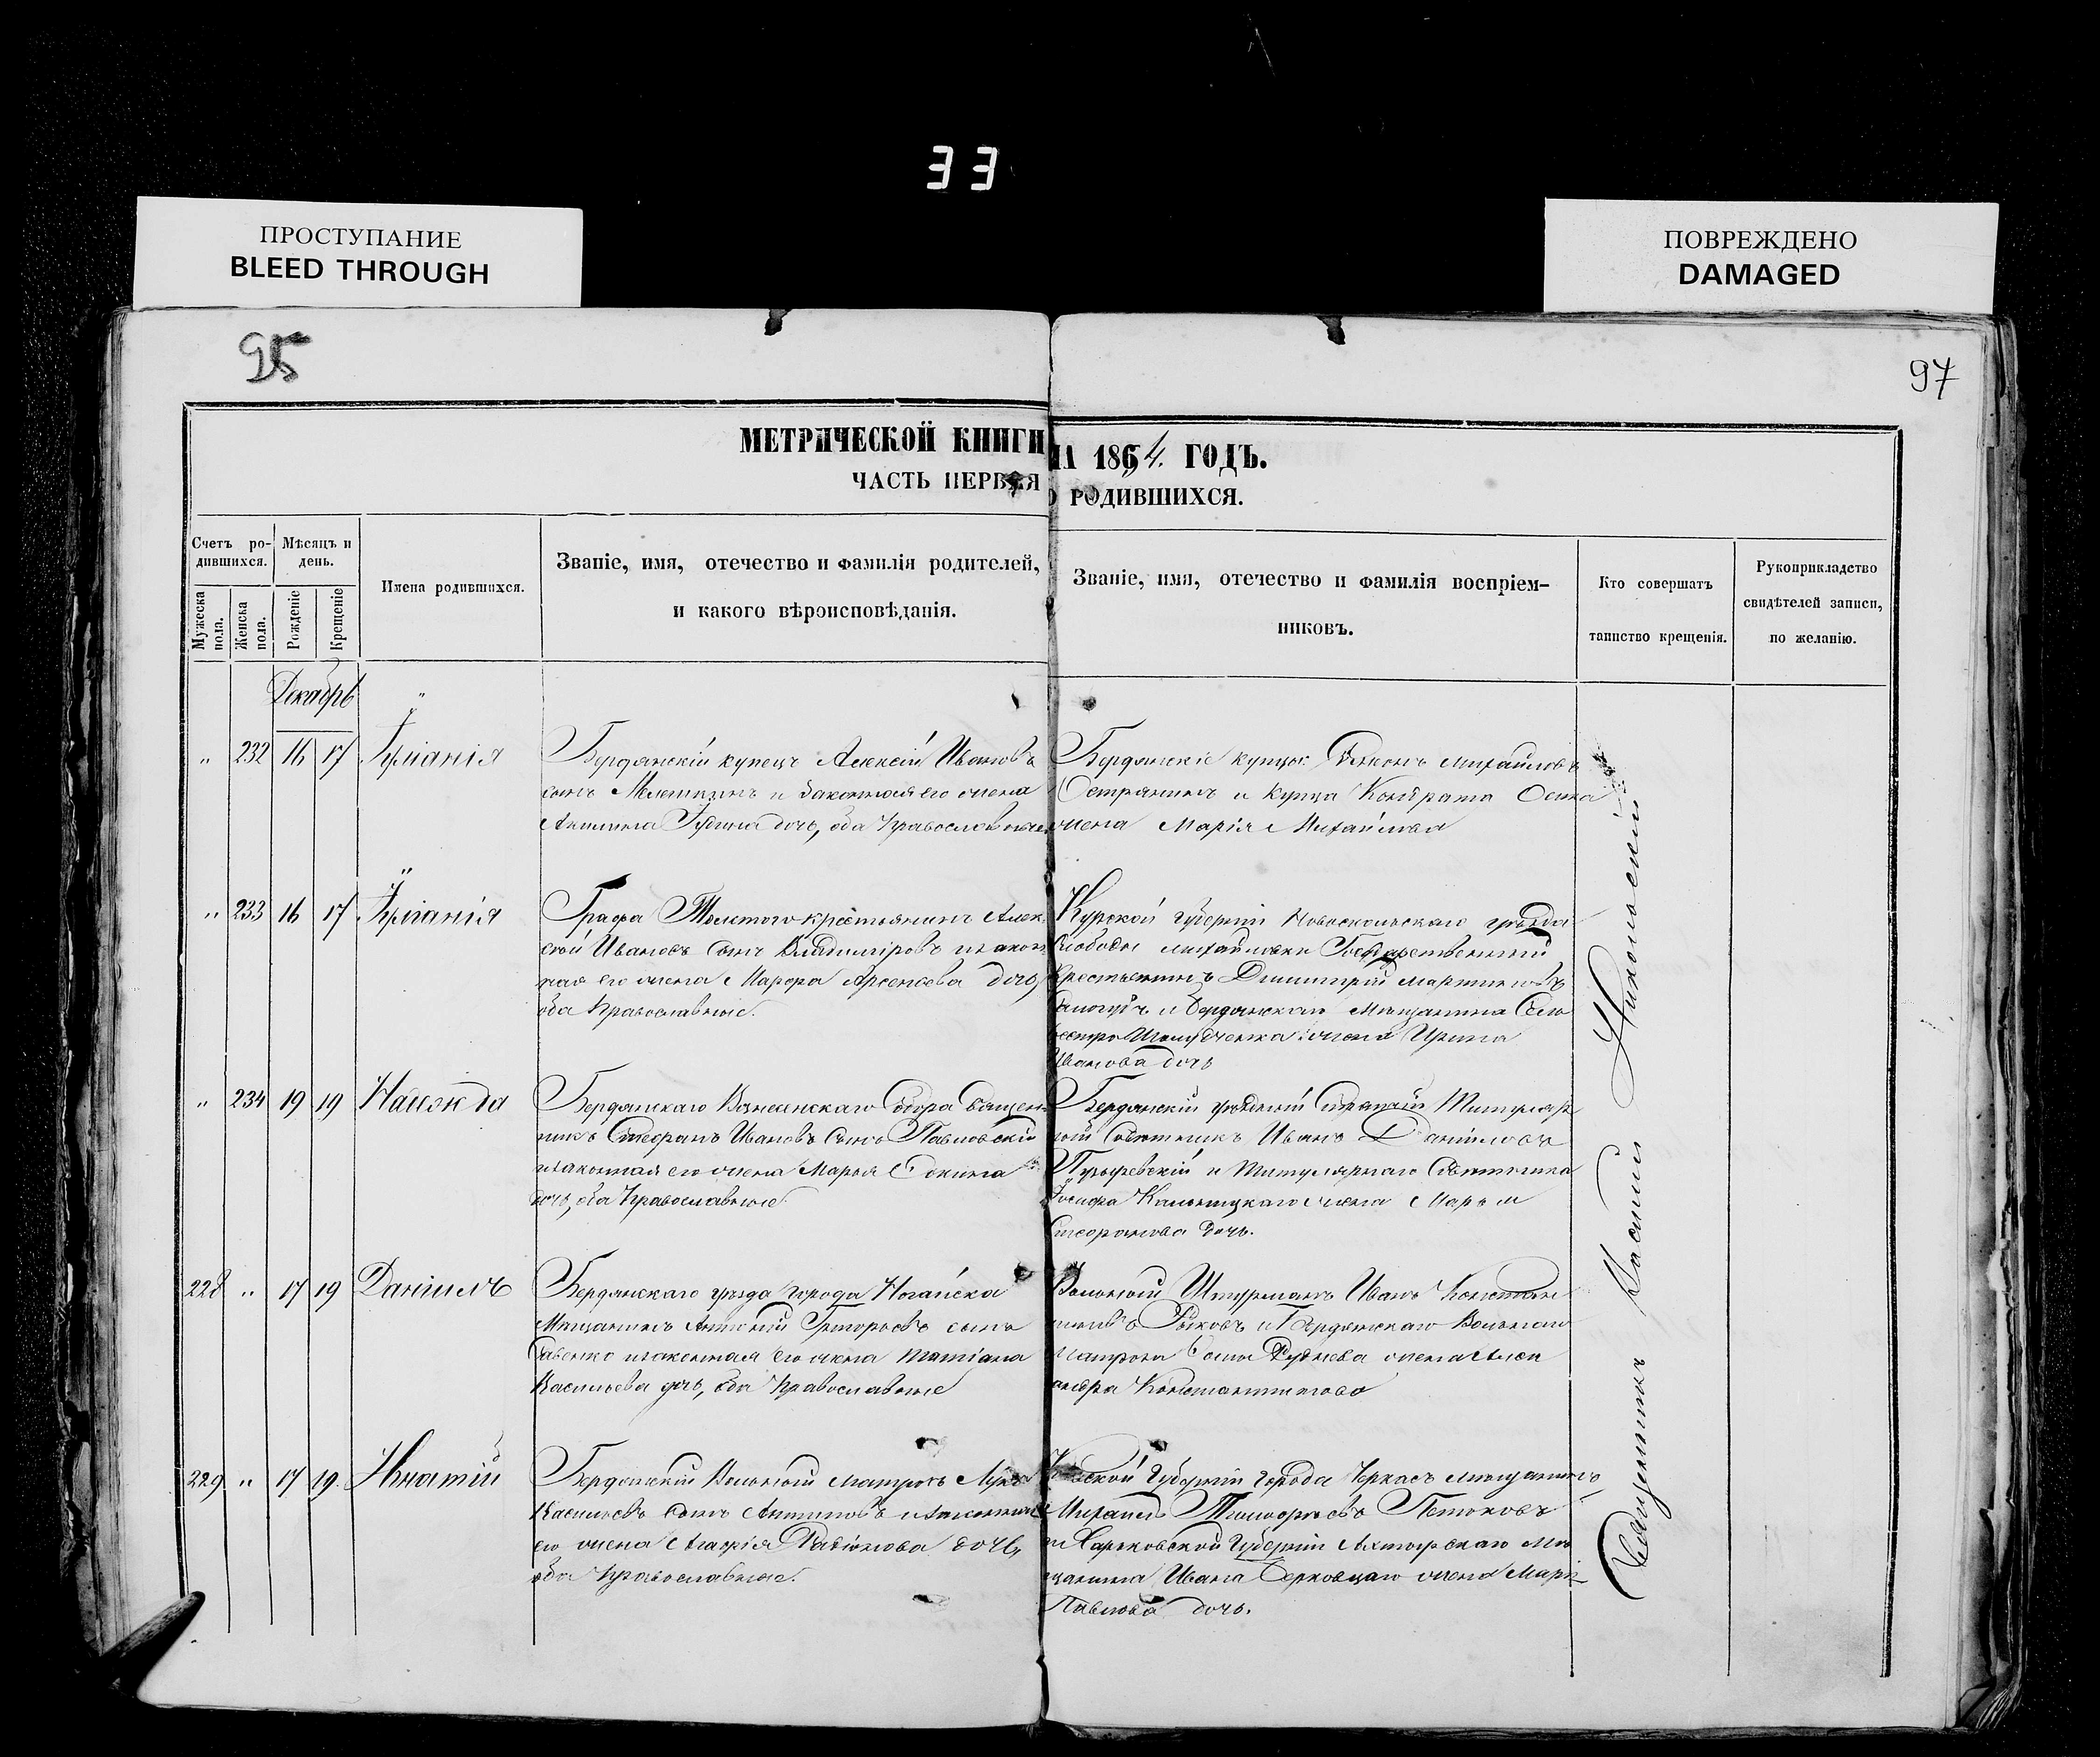 33
ПРОСТУПАНИЕ
BLEED THROUGH
ПОВРЕЖДЕНО
DAMAGED
95
97
МЕТРИЧЕСКОЙ КНИГИ НА 1864. ГОДЪ.
ЧАСТЬ ПЕРВАЯ О РОДИВШИХСЯ.
Счетъ ро-
дившихся.
Мужеска пола.
Женска пола.
Мѣсяцъ и
день.
Рожденіе
Крещеніе
Имена родившихся.
Званіе, имя, отечество и фамилія родителей,
и какого вѣроисповѣданія.
Званіе, имя, отечество и фамилія воспріем-
никовъ.
Кто совершатъ
таинство крещенія.
Рукоприкладство
свидѣтелей записи,
по желанію.
Декабрь "
" 232 16 17 Іуліанія
Бердянскій купецъ Алексій Ивановъ
сынъ и законная его жена
Акилина дочь, оба Православные
Бердянскіе купцы: Михайловъ
и купца Кондрата
жена Марія Михайлова
" 233 16 17 Іуліанія
Графа Толстого крестьянинъ Алек
сѣй Ивановъ сынъ Владиміровъ и закон
ная его жена Марфа Арсеньева дочь,
оба Православные.
Курской Губерніи Новооскольскаго уѣзда
Слободы Михайловки Государственный
Крестьянинъ Димитрій Мартиновъ
и Бердянскаго Мѣщанина Силь
вестра жена Ирина
Иванова дочь
" 234 19 19 Надежда
Бердянскаго Вознесенскаго Собора Священ
никъ Стефанъ Ивановъ сынъ Павловскій
и законная его жена Марья
дочь, оба Православные
Бердянскій уѣздный Стряпчій Титуляр
ный Совѣтникъ Иванъ Даниловъ
Пузыревскій и Титулярнаго Совѣтника
Іосифа жена Марья
Стефанова дочь.
228 " 17 19 Даніилъ
Бердянскаго уѣзда города Ногайска
Мѣщанинъ Антоній Григорьевъ сынъ
Савенко и законная его жена Татіана
Васильева дочь, оба Православные
Вольный Штурманъ Иванъ Констан
тиновъ Рыковъ и Бердянскаго Вольнаго
Матроса жена Алек
андра Константинова
229 " 17 19. Игнатій
Бердянскій Вольный матросъ Лука
Васильевъ сынъ Антиповъ и законная
его жена Агафія Радіонова дочь,
оба Православные.
Кіевской Губерніи города Черкасъ мѣщанинъ
Михаилъ Тимофѣевъ
и Харьковской Губерніи Ахтырскаго Мѣ
щанина Ивана жена Марія
Павлова дочь.
Священникъ Василій Никольскій